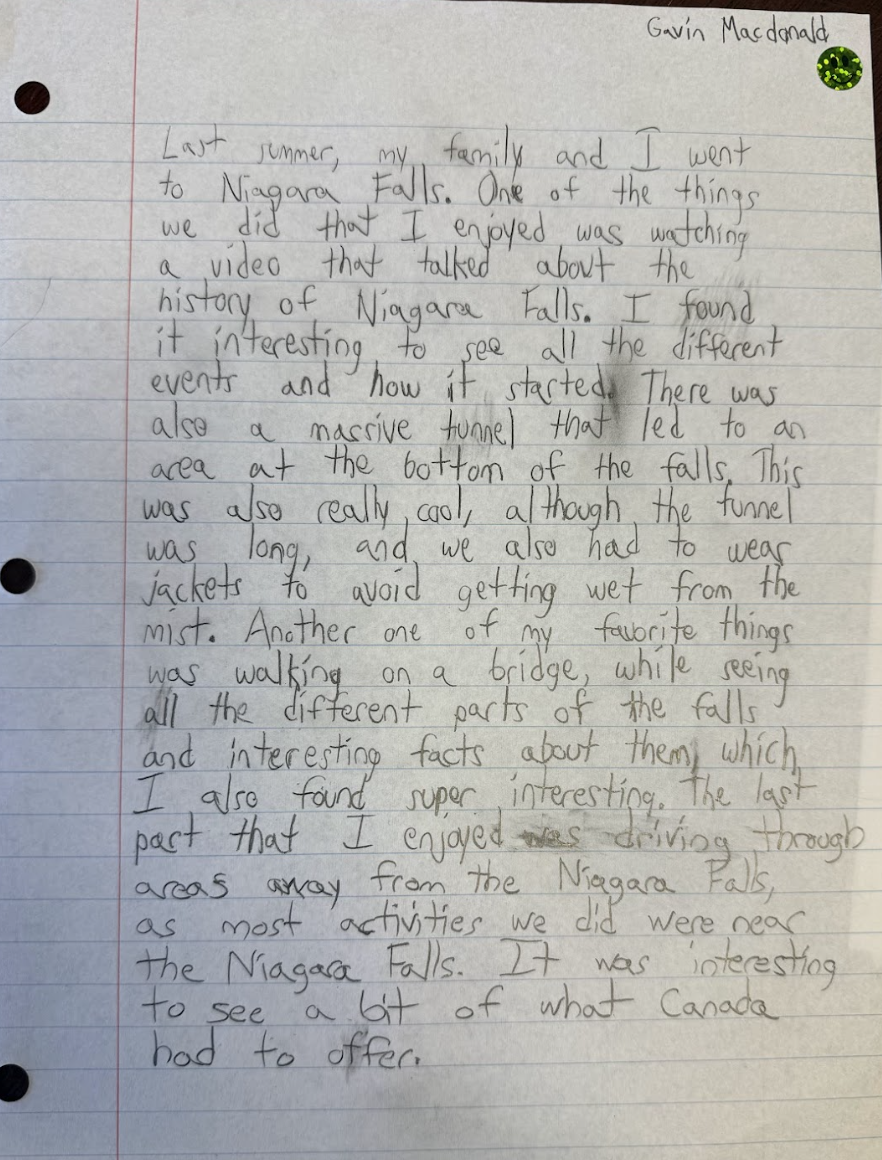 Gavin Macdonald
Last summer, my family and I went
to Niagara Falls. One of the things
we did that I enjoyed was watching
a video that talked about the
history of Niagara Falls. I found
it interesting to see all the different
events and how it started. There was
also a massive tunnel that led to an
area at the bottom of the falls. This
was also really cool, although the tunnel
was long, and we also had to wear
jackets to avoid getting wet from the
mist. Another one of my favorite things
was walking on a bridge, while seeing
all the different parts of the falls
and interesting facts about them, which
I also found super interesting. The last
part that I enjoyed was driving through
areas away from the Niagara Falls,
as most activities we did were near
the Niagara Falls. It was interesting
to see a bit of what Canada
had to offer.